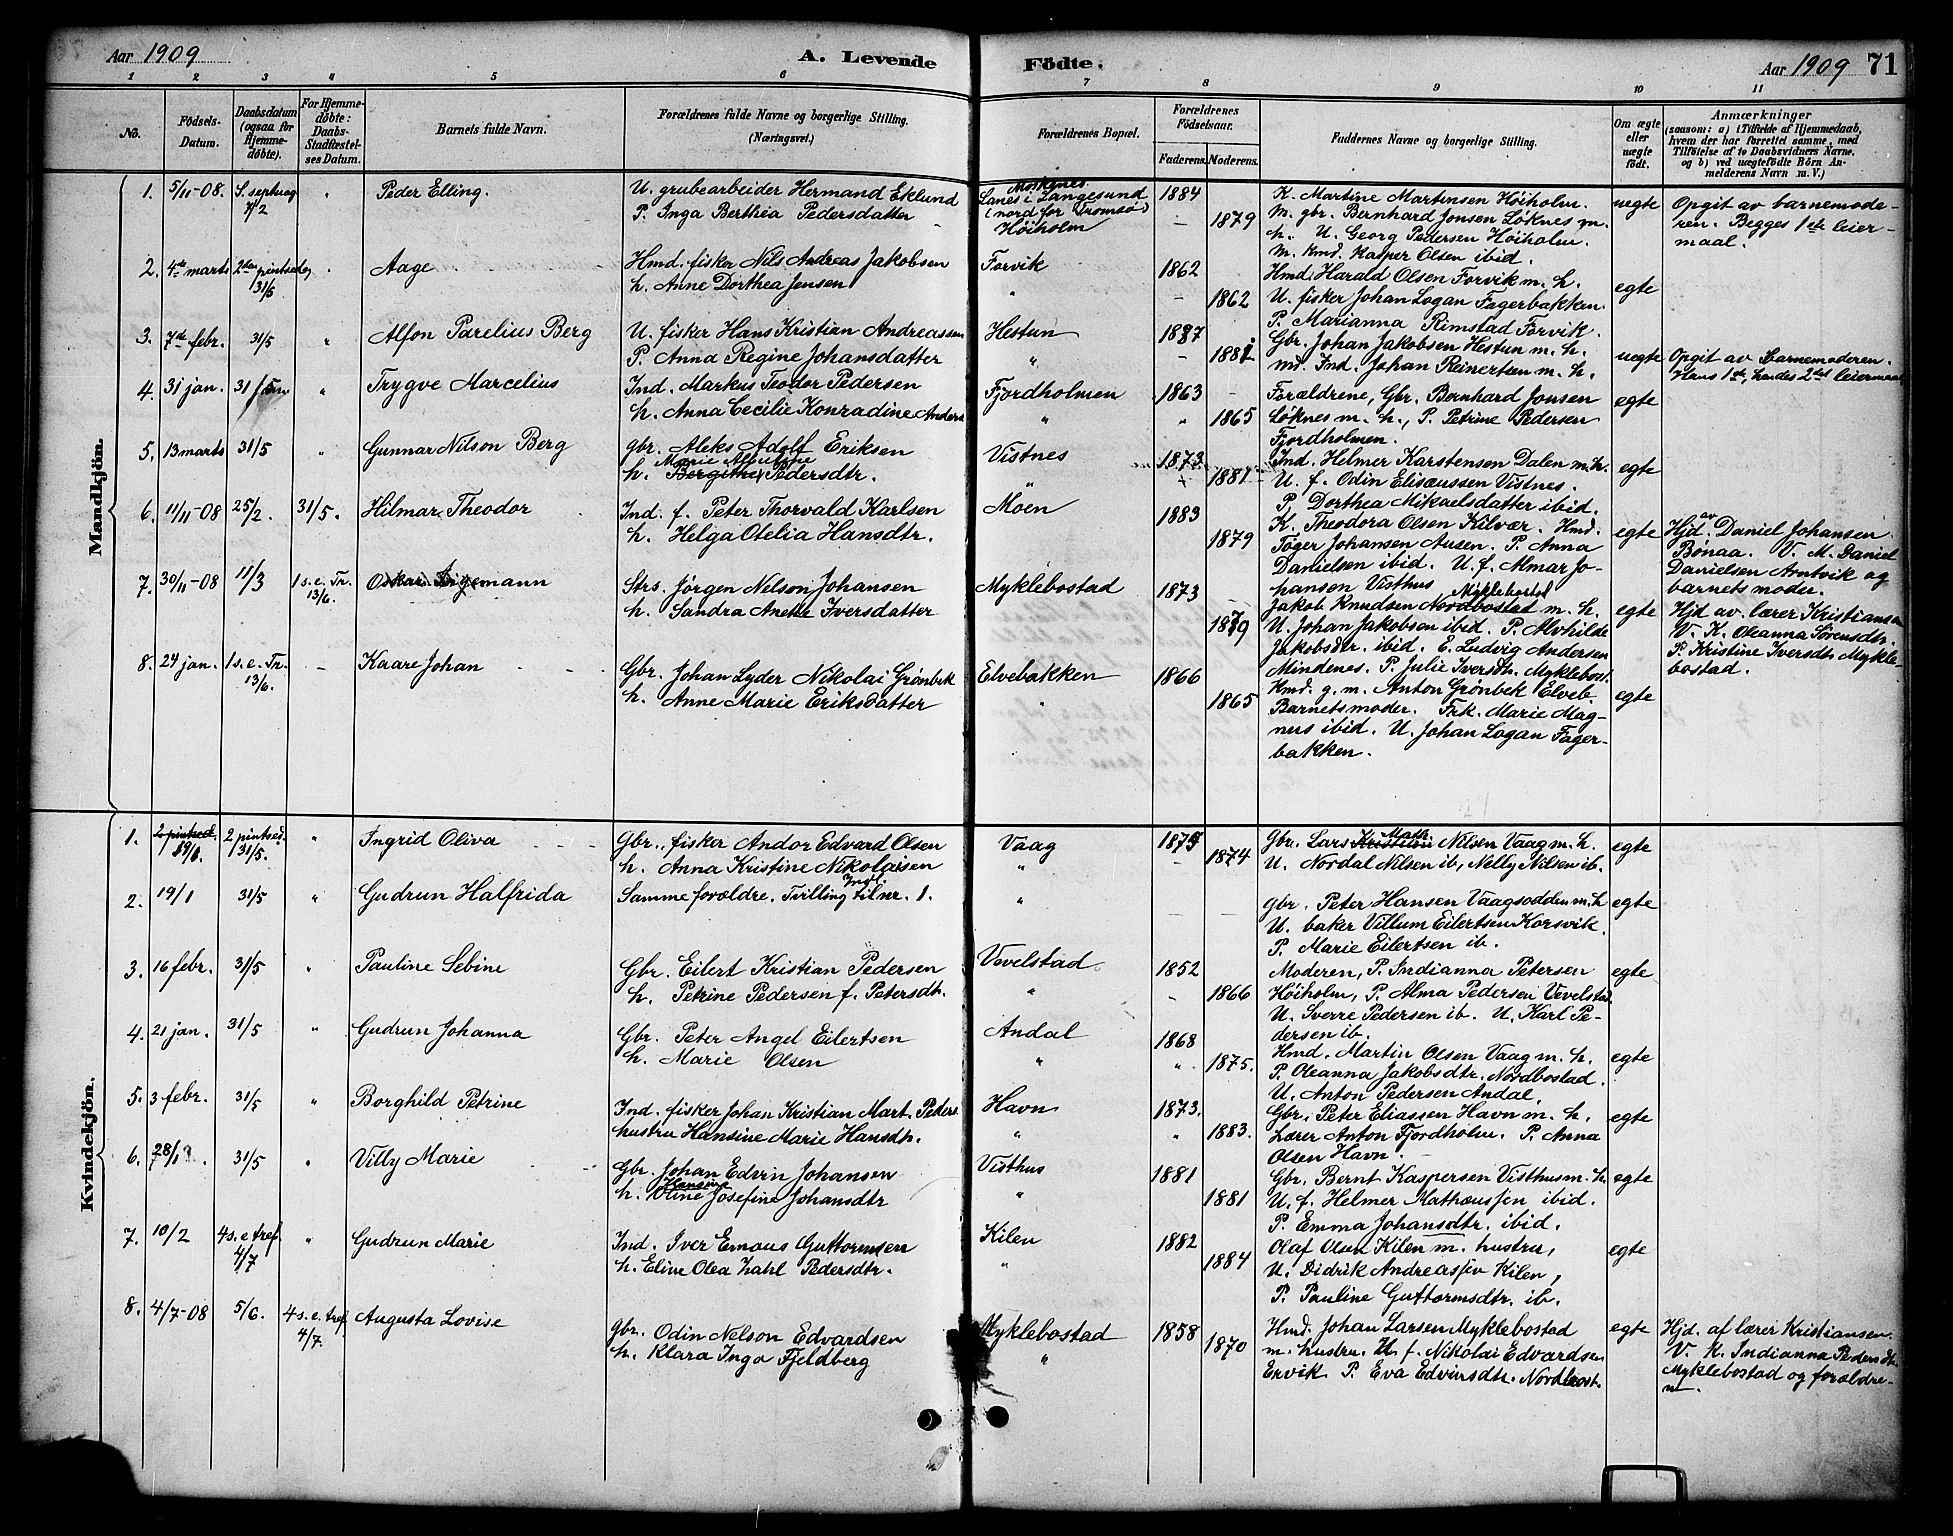 Aar 1909 A. Levende Födte. Aar 1909 71
1 2 3 4 5 6 7 8 9 10 11
No. Födsels-Datum. Daabsdatum (ogsaa for Hjemme-döbte). For Hjemme-döbte: Daabs-Stadfæstel-ses Datum. Barnets fulde Navn. Forældrenes fulde Navne og borgerlige Stilling. (Næringsvei.) Forældrenes Bopæl. Forældrenes Födselsaar. Faderens. Moderens. Faddernes Navne og borgerlige Stilling. Om ægte eller uægte födt. Anmærkninger (saasom: a) i Tilfælde af Hjemmedaab, hvem der har forrettet samme, med Tilföielse af to Daabsvidners Navne, og b) ved uægtefödte Börn An-melderens Navn m. V.)
Mandkjön.
1. 5/11-08. S. septuag 7/2 " Peder Elling.
U. grubearbeider Hermand Eklund
P. Inga Berthea Pedersdatter
Moskenes
Lanes i Langesund
(nord for Tromsø)
Høiholm
1884
– 1879
K. Martine Martinsen Høiholm.
M. gbr. Bernhard Jonsen Løknes m.
h. U. Georg Pedersen Høiholm.
M. Kmd. Kasper Olsen ibid.
uegte
Opgit av barnemode-
ren. Begges 1ste leier-
maal.
2. 4de marts 2den pintsedag 31/5 " Aage
Hmd. fisker Nils Andreas Jakobsen
h. Anne Dorthea Jensen
Forvik
"
1862
– 1862
Hmd. Harald Olsen Forvik m. h.
U. fisker Johan Logan Fagerbakken.
P. Marianna Rimstad Forvik.
egte
3. 7de febr. 31/5 " Alfon Parelius Berg
U. fisker Hans Kristian Andreassen
P. Anna Regine Johansdatter
Hestun
"
1887
– 1881
Gbr. Johan Jakobsen Hestun m. h.
md. Ind. Johan Reinertsen m. h.
uegte
Opgit av barnemoderen.
Hans 1ste, hendes 2det leiermaal
4. 31 jan. 31/5 " Trygve Marcelius
Ind. Markus Teodor Pedersen
h. Anna Cecilie Konradine Anders
Fjordholmen
"
1863
" 1865
Forældrene, Gbr. Bernhard Jonsen
Løknes m. h., P. Petrine Pedersen
Fjordholmen.
egte
5. 13 marts 31/5 " Gunnar Nilson Berg
gbr. Aleks Adolf Eriksen
h. Bergithe Pedersdtr.
Vistnes
"
1873
1881
Ind. Helmer Karstensen Dalen m. h.
U. f. Odin Elisæussen Vistnes.
P. Dorthea Mikaelsdatter ibid.
egte
6. 11/11-08 25/2. 31/5. Hilmar Theodor
Ind. f. Peter Thorvald Karlsen
h. Helga Otelia Hansdtr.
Moen
1883
1879
K. Theodora Olsen Kilvær. Hmd.
Tøger Johansen Ausen. P. Anna
Danielsen ibid. U. f. Almar Jo-
hansen Visthus
egte
Hjd. av Daniel Johansen
Bønaa. V. M. Daniel
Danielsen Arntvik og
barnets moder.
7. 30/11-08 11/3 1 s. e. Tr. 13/6. Oskar Sigemann
Strs. Jørgen Nelson Johansen
h. Sandra Anette Iversdatter
Myklebostad
1873
1879
Jakob Knudsen Nordbostad Myklebostad m. h.
U. Johan Jakobsen ibid. P. Alvhilde
Jakobsdtr. ibid. E. Ludvig Andersen
Mindenes. P. Julie Iversdtr. Myklebost.
egte
Hjd av. lærer Kristiansen
V. K. Oleanna Sørensdtr.
P. Kristine Iversdtr. Mykle-
bostad.
8. 24 jan. 1 s. e. Tr. 13/6. – Kaare Johan
Gbr. Johan Lyder Nikolai Grønbek
h. Anne Marie Eriksdatter
Elvebakken
"
1866
1865
Kmd. g. m. Anton Grønbek Elveb.
Barnets moder. Frk. Marie Mag-
ners ibid. U. Johan Logan Fager-
bakken.
egte
Kvindekjön.
1. 2 pintsed. 19/1. 2 pintsed. 31/5. " Ingrid Oliva
Gbr., fisker Andor Edvard Olsen
h. Anna Kristine Nikolaisen
Vaag
"
1874
Gbr. Lars Kristian Math. Nilsen Vaag m. h.
U. Nordal Nilsen ib, Nelly Nilsen ib.
egte
2. 19/1 31/5 " Gudrun Halfrida
Samme forældre. Tvilling til nr. 1.
"
Gbr. Peter Hansen Vaagsodden m. h
U. baker Villum Eilertsen Korsvik.
P. Marie Eilertsen ib.
egte
3. 16 febr. 31/5 " Pauline Sebine
Gbr. Eilert Kristian Pedersen
h. Petrine Pedersen f. Petersdtr.
Vevelstad
"
1852
– 1866
Moderen, P. Indianna Petersen
Høiholm, P. Alma Pedersen Vevelstad
U. Sverre Pedersen ib. U. Karl Pe-
dersen ib.
egte
4. 21 jan. 31/5 " Gudrun Johanna
Gbr. Peter Angel Eilertsen
h. Marie Olsen
Andal
"
1868
" 1875.
Hmd. Martin Olsen Vaag m. h.
P. Oleanna Jakobsdtr. Nordbostad.
U. Anton Pedersen Andal,
egte
5. 3 febr. 31/5 " Borghild Petrine
Ind. fisker Johan Kristian Mart. Peders
hustru Hansine Marie Hansdtr.
Havn
"
1873.
" 1883.
Gbr. Peter Eliassen Havn m. h.
Lærer Anton Fjordholm. P. Anna
Olsen Havn.
egte
6. 28/1. 31/5 " Villy Marie
Gbr. Johan Edvin Johansen
h. Oline Hansine Josefine Johansdtr
Visthus
"
1881
1881
Gbr. Bernt Kaspersen Visthus m. h
U. f. Helmer Mathæussen ibid.
P. Emma Johansdtr. ibid.
egte
7. 10/2 4 s. e tref. 4/7 " Gudrun Marie
Ind. Iver Emaus Guttormsen
h. Eline Olea Zahl Pedersdtr.
Kilen
"
1882
1884
Olaf Olsen Kilen m. hustru,
U. Didrik Andreassen Kilen,
P. Pauline Guttormsdtr. ib.
egte
8. 4/7-08 5/6. 4 s. e. tref. 4/7. Augusta Lovise
Gbr. Odin Nelson Edvardsen
h. Klara Inga Fjeldberg
Myklebostad
"
1858
1870
Hmd. Johan Larsen Myklebostad
m. hustru. U. f. Nikolai Edvardsen
Ervik P. Eva Edvinsdtr. Nordbost.
egte
Hjd. af lærer Kristiansen
V. K. Indianna Pedersdtr.
Myklebostad og forældre-
ne.